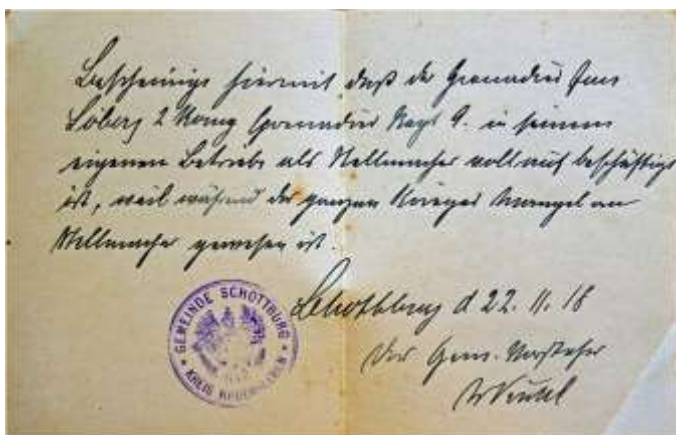 Bescheinige hiermit daß der Grenadier Jens
Söberg 2 Komp Grenadier Regt 9. in seinem
eigenen Betriebe als Stellmacher voll auf beschäftigt
ist, weil während des ganzen Krieges Mangel an
Stellmacher gewesen ist.
Schottburg d 22. 11. 18
Der Gem. Vorsteher
GEMEINDE SCHOTTBURG
KREIS HADERSLEBEN